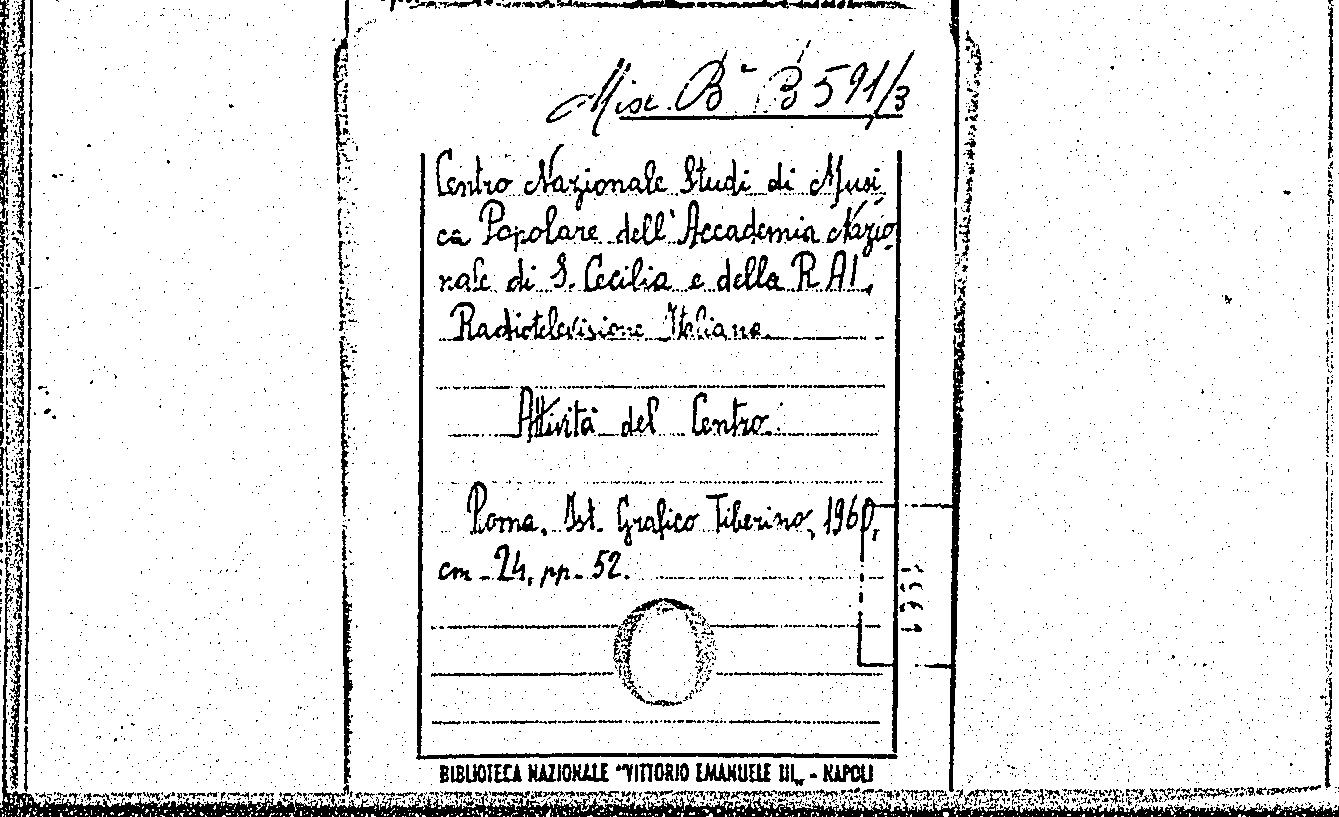 Misc. Bª B 591/3
Centro Nazionale Studi di Musi
ca Popolare dell'Accademia Nazio
nale di S. Cecilia e della RAI,
Radiotelevisione Italiana.
Attività del Centro.
Roma, Ist. Grafico Tiberino, 1960,
cm. 24, pp. 52.
BIBLIOTECA NAZIONALE "VITTORIO EMANUELE III„ - NAPOLI